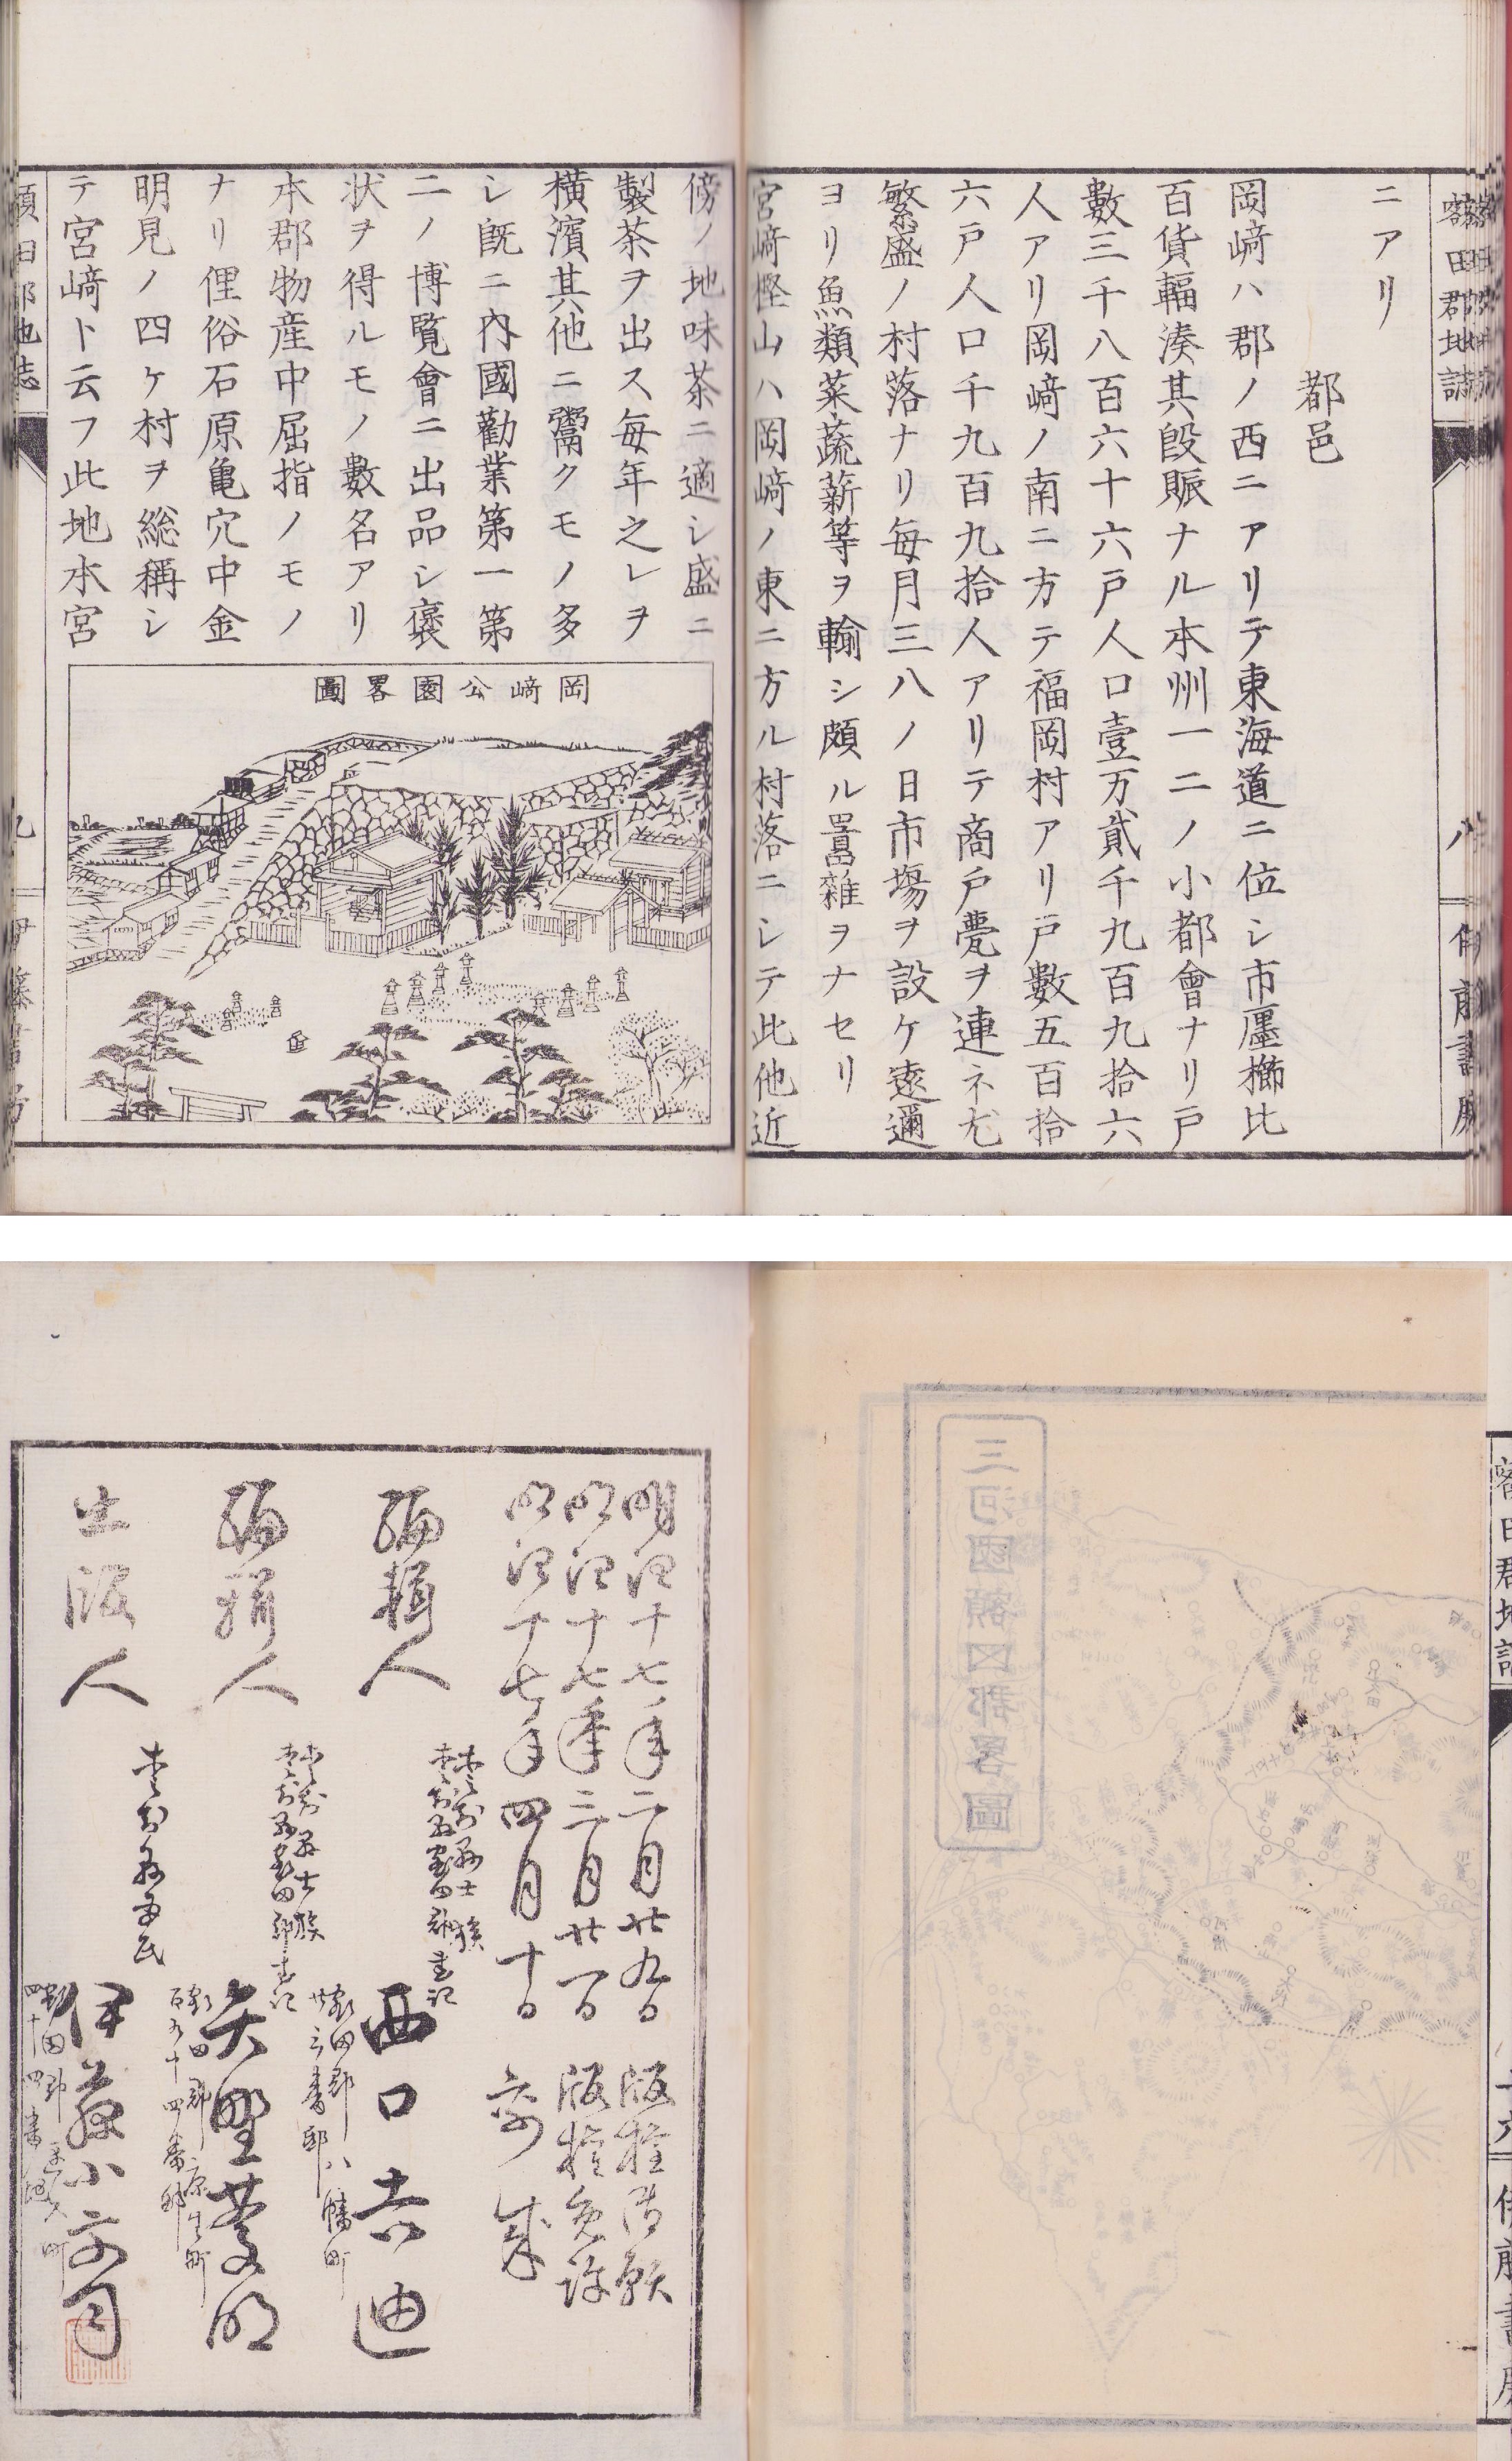 額田郡地誌
八
伊藤書房
ニアリ
都邑
岡﨑ハ郡ノ西ニアリテ東海道ニ位シ市廛櫛比
百貨輻湊其殷賑ナル本州一二ノ小都會ナリ戸
數三千八百六十六戸人口壹万貳千九百九拾六
人アリ岡﨑ノ南ニ方テ福岡村アリ戸數五百拾
六戸人口千九百九拾人アリテ商戸甍ヲ連ネ尤
繁盛ノ村落ナリ毎月三八ノ日市塲ヲ設ケ遠邇
ヨリ魚類菜蔬薪等ヲ輸シ頗ル囂雜ヲナセリ
宮﨑樫山ハ岡﨑ノ東ニ方ル村落ニシテ此他近
傍ノ地味茶ニ適シ盛ニ
製茶ヲ出ス毎年之レヲ
橫濱其他ニ鬻クモノ多
シ既ニ內國勸業第一第
二ノ博覽會ニ出品シ褒
状ヲ得ルモノ數名アリ
本郡物産中屈指ノモノ
ナリ俚俗石原亀穴中金
明見ノ四ケ村ヲ総稱シ
テ宮﨑ト云フ此地本宮
岡﨑公園畧圖
額田郡地誌
九
伊藤書房
額田郡地誌
十六
伊藤書房
三河國額田郡畧圖
明治十七年二月廿九日 版權御願
明治十七年三月廿一日 版權免許
明治十七年四月十日 刻成
編輯人
愛知縣士族
愛知縣額田郡書記
西口吉迪
額田郡八幡町
廿三番邸
編輯人
愛知縣士族
愛知縣額田郡書記
矢野
額田郡
百九十四番邸
出版人
愛知縣平民
伊藤小文司
額田郡
四十四番地